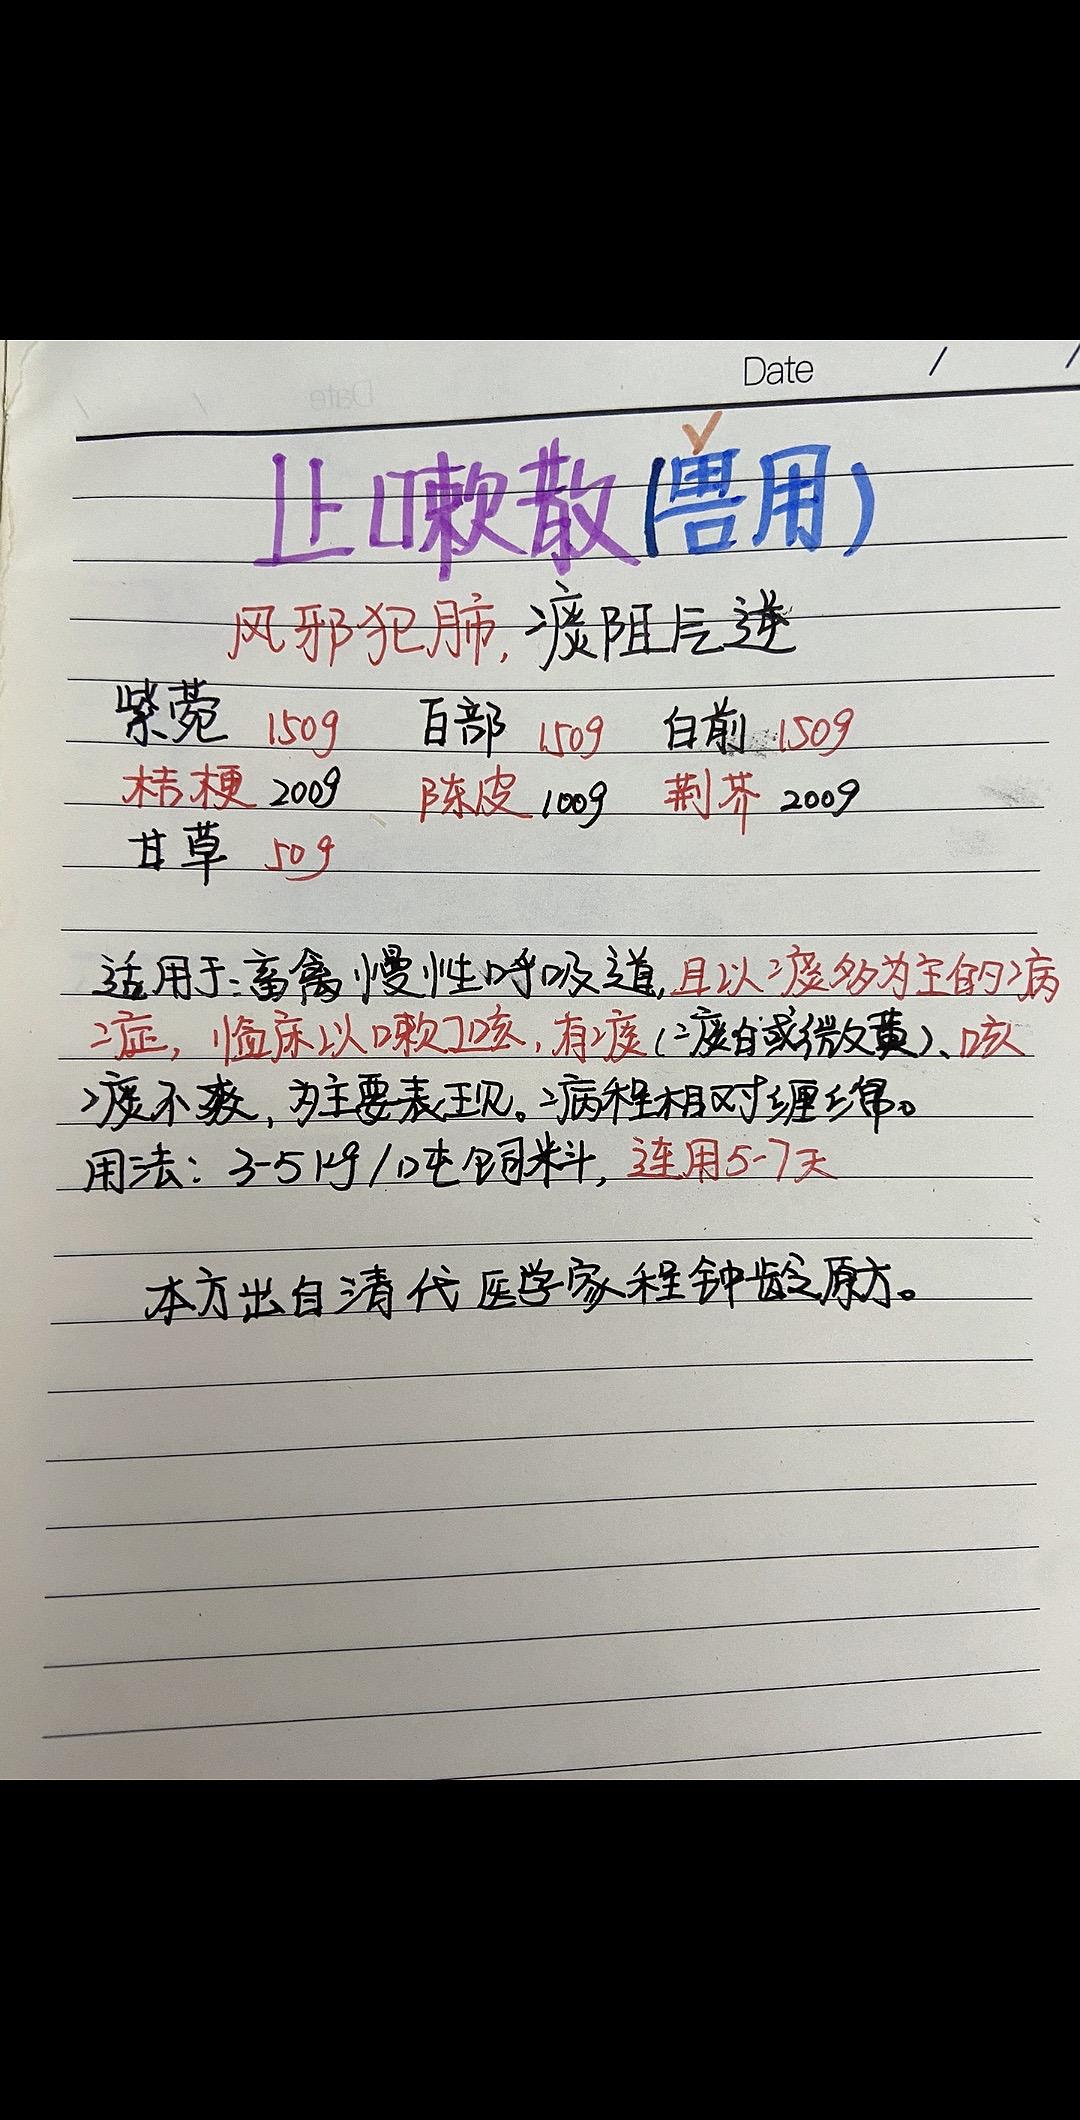 Date / /
止嗽散(兽用)
风邪犯肺,痰阻气逆
紫菀 150g 百部 150g 白前 150g
桔梗 200g 陈皮 100g 荆芥 200g
甘草 50g
适用于:畜禽慢性呼吸道,且以痰多为主的病
症,临床以嗽了咳,有痰(痰白或微黄)、咳
痰不爽,为主要表现。病程相对缠绵。
用法:3-5kg/吨饲料,连用5-7天
本方出自清代医学家程钟龄之原方。